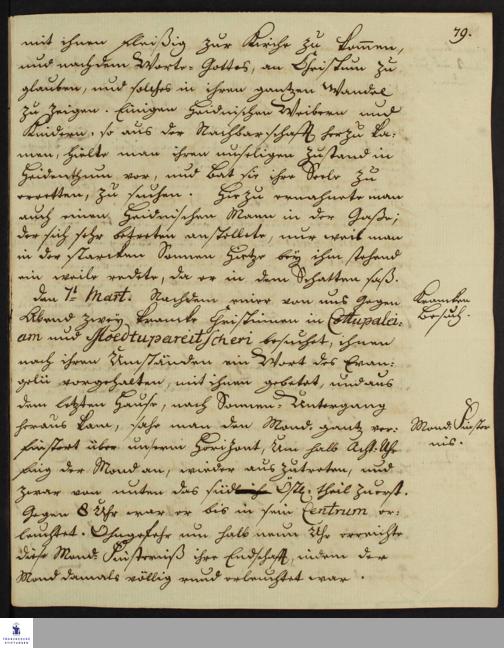 79.
mit ihnen fleißig zur Kirche zu kommen,
und nach dem Worte Gottes, an Christum zu
glauben, und solches in ihrem gantzen Wandel
zu zeigen. Einigen Heidnischen Weibern und
Kindern, so aus der Nachbarschafft herzu ka-
men, hielte man ihren unseligen Zustand im
Heidenthum vor, und bat sie ihre Seele zu
erretten, zu suchen. Hiezu ermahnete man
auch einen Heidnischen Mann in der Gaße;
der sich sehr betreten anstellete, nur weil man
in der starcken Sonnen Hitze bey ihm stehend
ein weile redete, da er in dem Schatten saß.
Den 7t. Mart. Nachdem einer von uns gegen
Abend zwey krancke Christinnen in Cottupalei-
am und Moedtupareitscheri besuchet, ihnen
nach ihren Umständen ein Wort des Evan-
gelii vorgehalten, mit ihnen gebetet, und aus
dem letzten Hause, nach Sonnen-Untergang
heraus kam, sahe man den Mond gantz ver-
finstert über unserm Horizont, Um halb Acht Uhr
fing der Mond an, wieder auszutreten, und
zwar von unten das südl. Östl. theil zuerst.
Gegen 8 Uhr war er bis in sein Centrum er-
leuchtet. Ohngefehr um halb neun Uhr erreichte
diese Mond-Finsterniß ihre Endschafft, indem der
Mond damals völlig rund erleuchtet war.
Krancken
Besuch.
Mond-Finster
nis.
FRANCKESCHE
STIFTUNGEN